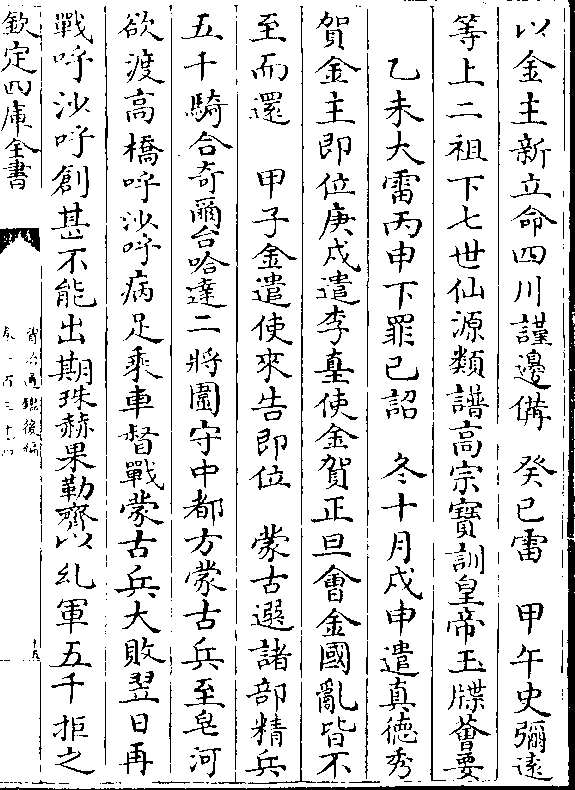 以金主新立命四川謹邊備　癸巳雷　甲午史彌遠
等上二祖下七世仙源類譜高宗寶訓皇帝玉牒㑹要
乙未大雷丙申下罪己詔　冬十月戊申遣真德秀
賀金主即位庚戌遣李𡌴使金賀正旦㑹金國亂皆不
至而還　甲子金遣使來告即位　蒙古選諸部精兵
五千騎合奇爾台哈達二將圍守中都方蒙古兵至皂河
欲渡高橋呼沙呼病足乗車督戰蒙古兵大敗翌日再
戰呼沙呼創甚不能出期珠赫果勒齊以乣軍五千拒之
欽定四庫全書
資治通鑑後編